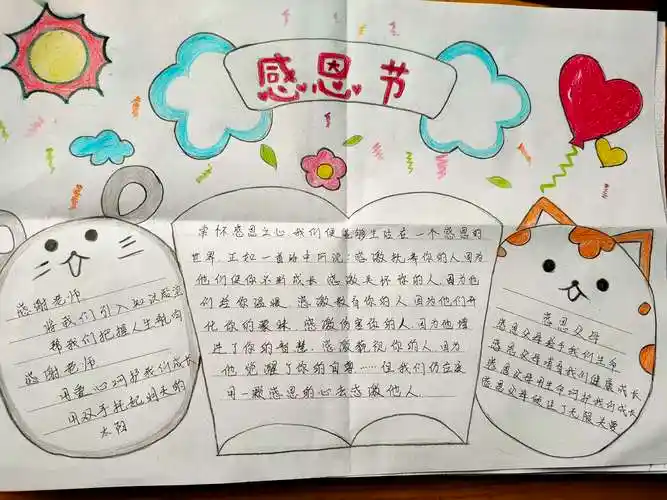 感恩节
感谢老师
将我们引入知识殿堂
帮我们把握人生航向
感谢老师
用爱心呵护我们成长
用双手托起明天的
太阳
常怀感恩之心,我们便能够生活在一个感恩的
世界,正如一首诗中所说:感激抚养你的人,因为
他们使你不断成长,感激关怀你的人,因为他
们给你温暖,感激教育你的人,因为他们开
化你的蒙昧,感激伤害你的人,因为他增
进了你的智慧,感激藐视你的人,因为
他觉醒了你的自尊……但我们仍应该
用一颗感恩的心去感激他人。
感恩父母
感恩父母给予我们生命
感恩父母哺育我们健康成长
感恩父母用生命呵护我们成长
感恩父母倾注了无限关爱